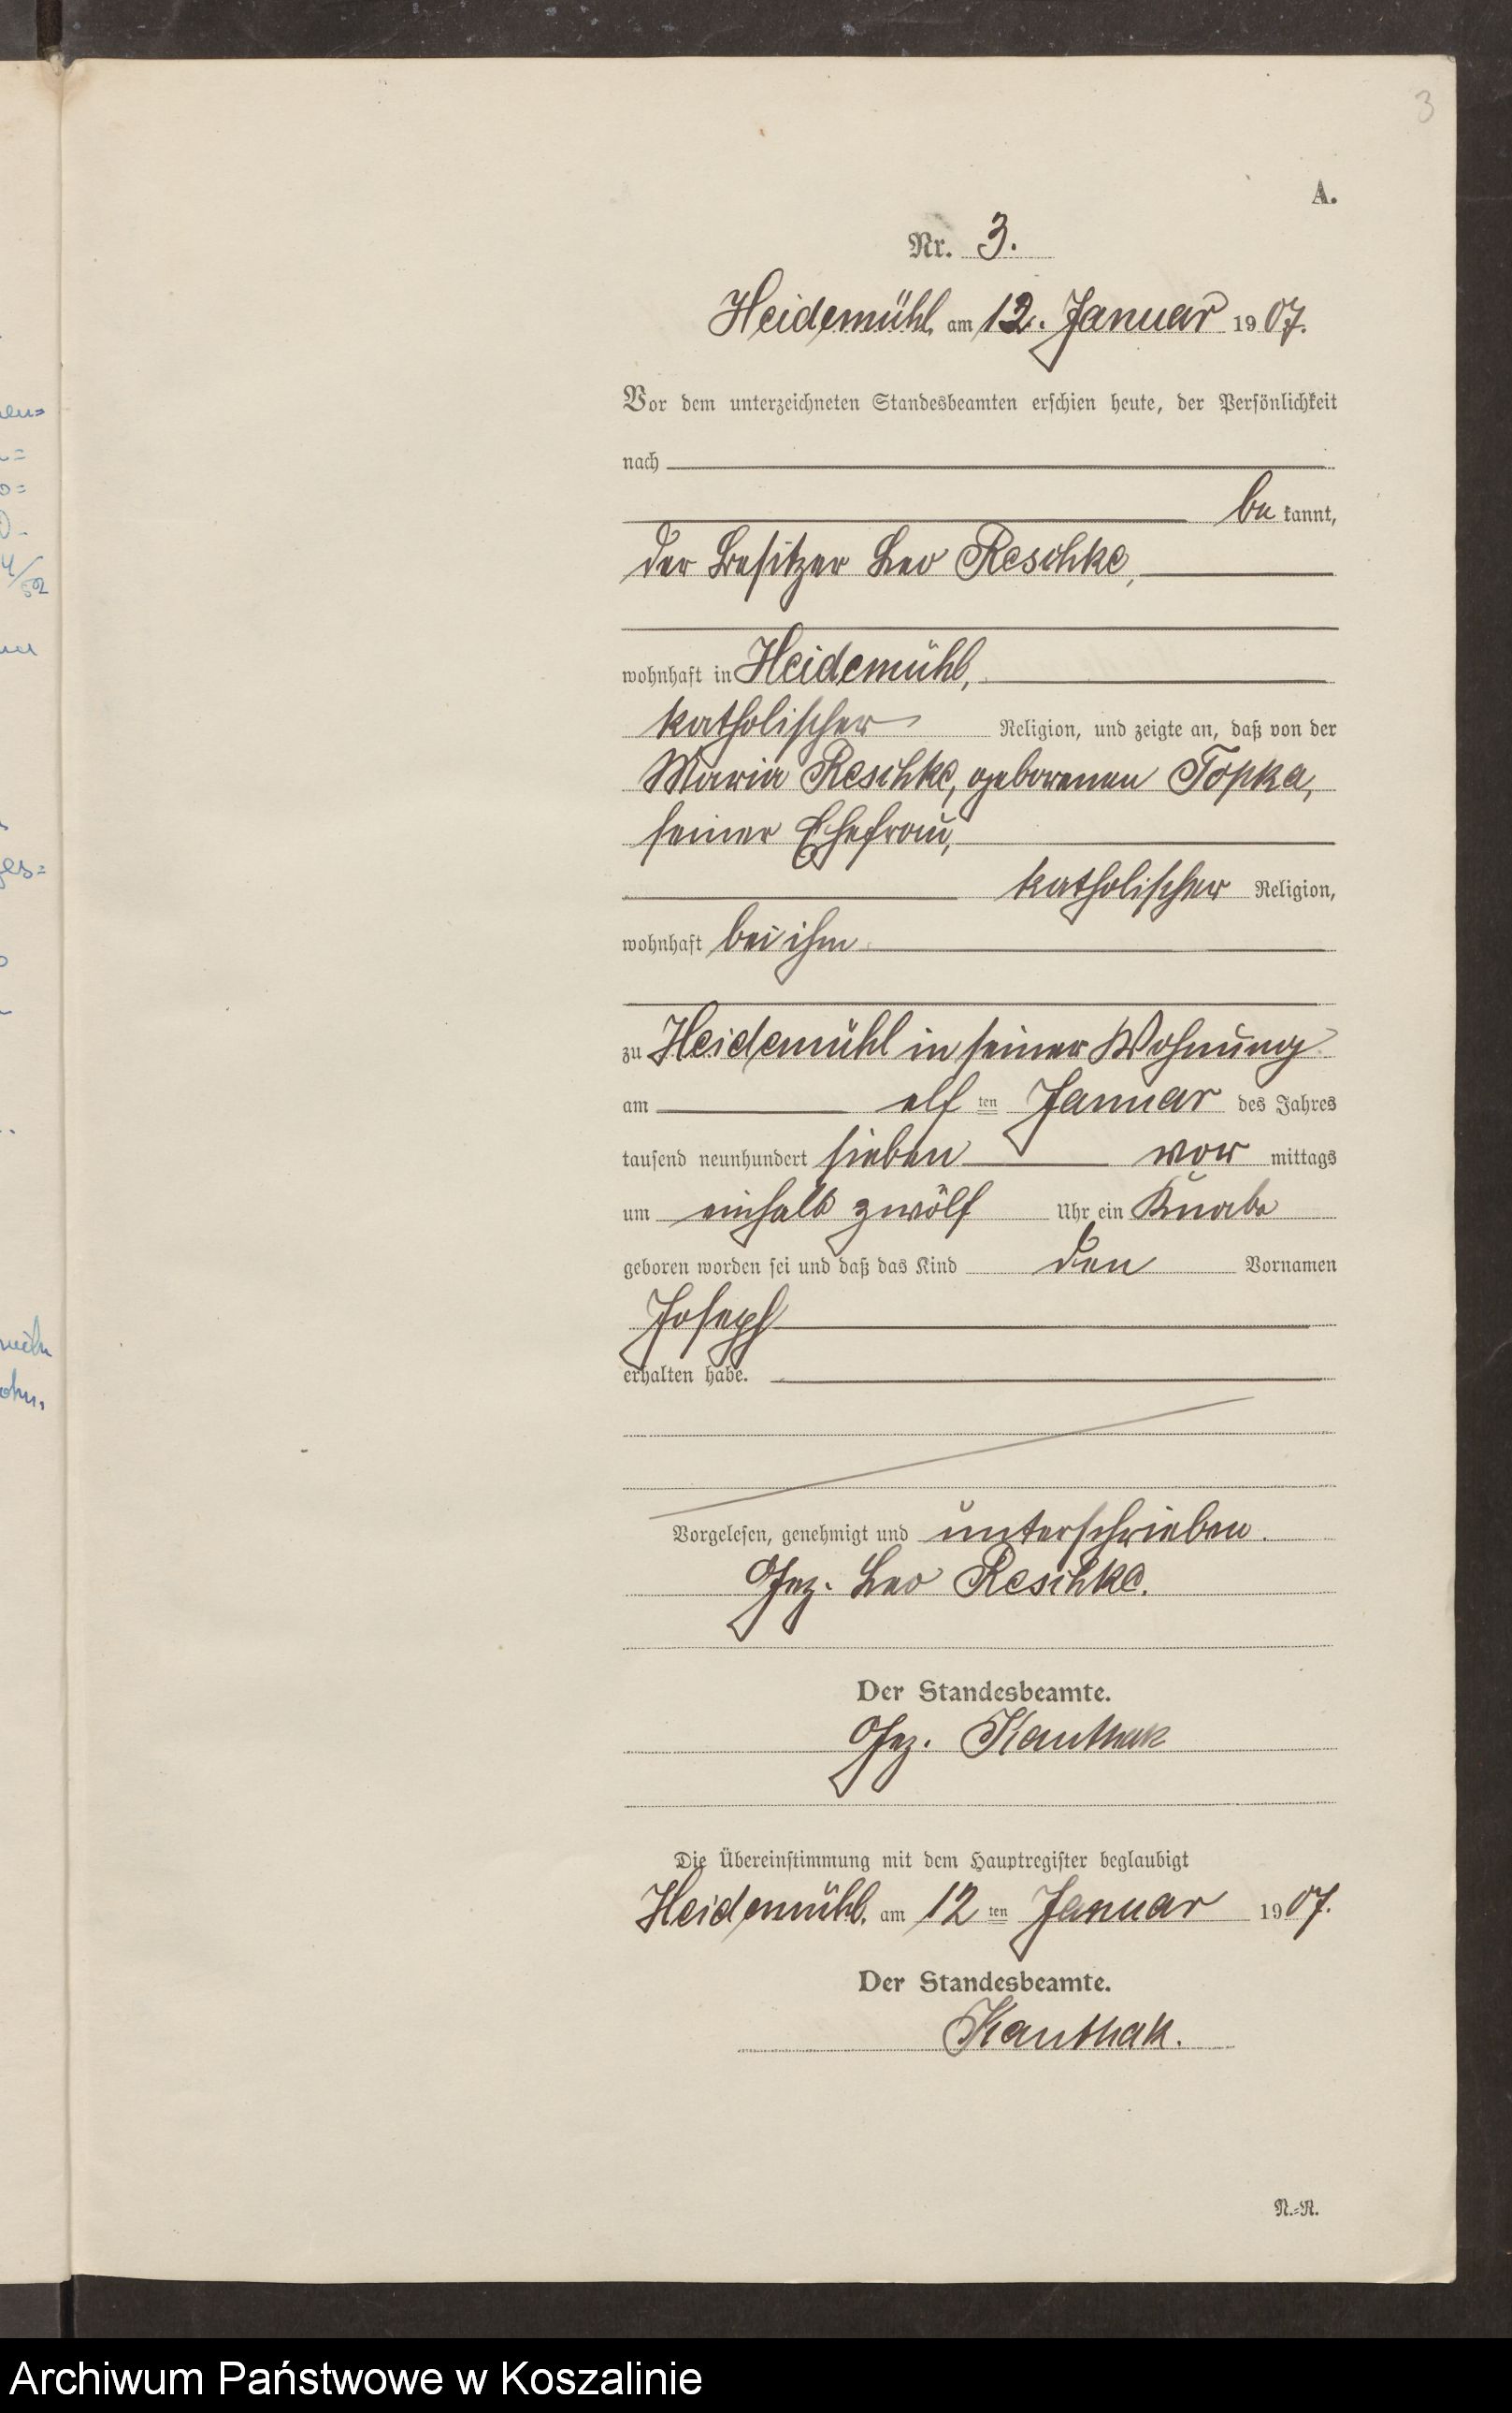 3
A.
Nr. 3.
Heidemühl, am 12. Januar 1907.
Vor dem unterzeichneten Standesbeamten erschien heute, der Persönlichkeit
nach
be kannt,
der Besitzer Leo Reschke,
wohnhaft in Heidemühl,
katholischer Religion, und zeigte an, daß von der
Maria Reschke, geborenen Topka,
seiner Ehefrau,
katholischer Religion,
wohnhaft bei ihm
zu Heidemühl in seiner Wohnung
am elf ten Januar des Jahres
tausend neunhundert sieben vor mittags
um einhalb zwölf Uhr ein Knabe
geboren worden sei und daß das Kind den Vornamen
Joseph
erhalten habe.
Vorgelesen, genehmigt und unterschrieben.
Gez. Leo Reschke.
Der Standesbeamte.
Gez. Kanthak
Die Übereinstimmung mit dem Hauptregister beglaubigt
Heidemühl, am 12 ten Januar 1907.
Der Standesbeamte.
Kanthak.
N.=R.
Archiwum Państwowe w Koszalinie